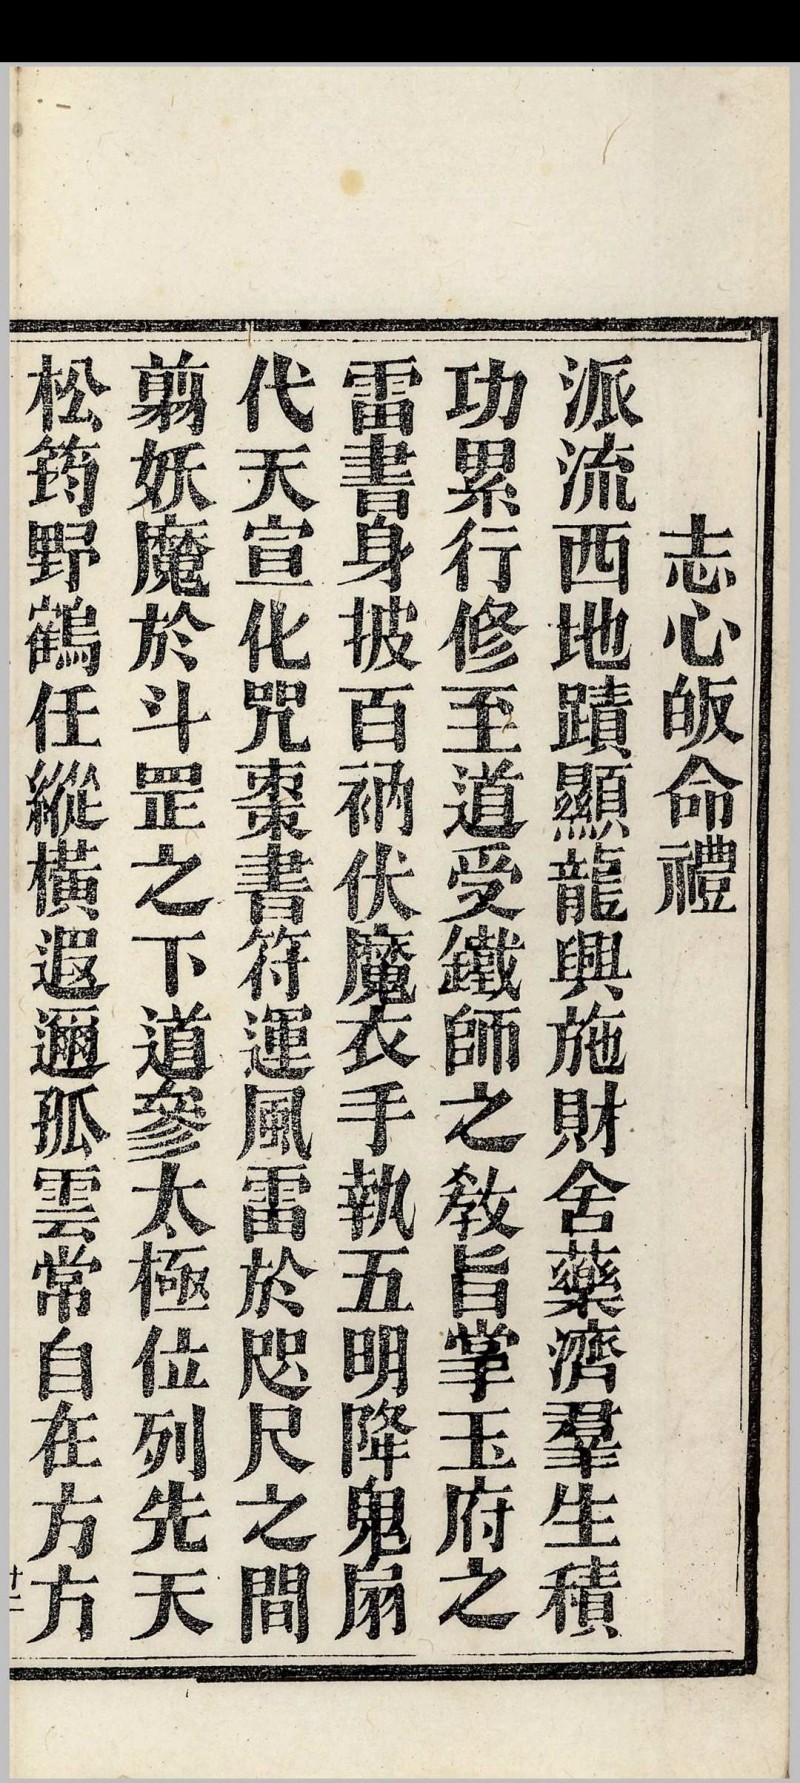 志心皈命禮
派流西地蹟顯龍興施財舍藥濟羣生積
功累行修至道受鐵師之敎旨掌玉府之
雷書身披百衲伏魔衣手執五明降鬼扇
代天宣化咒棗書符運風雷於咫尺之間
翦妖魔於斗罡之下道參太極位列先天
松筠野鶴任縱橫遐邇孤雲常自在方方
十二